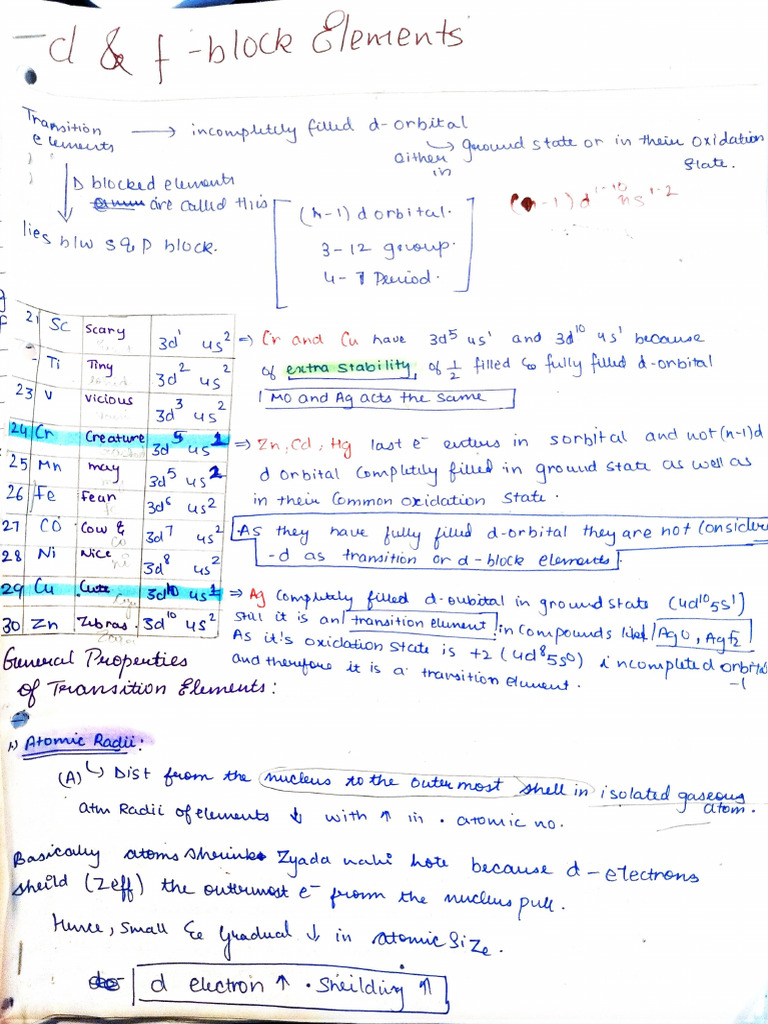 - d & f - block Elements
Transition elements → incompletely filled d-orbital
either in → ground state or in their oxidation state.
D blocked elements are called this
lies b/w s & p block.
(n-1) d orbital.
3-12 group.
4-7 Period.
(n-1)d¹⁻¹⁰ ns¹⁻²
21 Sc Scary 3d¹ 4s²
Ti Tiny 3d² 4s²
23 V Vicious 3d³ 4s²
24 Cr Creature 3d⁵ 4s¹
25 Mn may 3d⁵ 4s²
26 Fe Fear 3d⁶ 4s²
27 CO Cow & 3d⁷ 4s²
28 Ni Nice 3d⁸ 4s²
29 Cu Cute 3d¹⁰ 4s¹
30 Zn Zebras 3d¹⁰ 4s²
⇒ Cr and Cu have 3d⁵ 4s¹ and 3d¹⁰ 4s¹ because
of extra stability of ½ filled & fully filled d-orbital
MO and Ag acts the same
⇒ Zn, Cd, Hg last e⁻ enters in sorbital and not (n-1)d
d orbital completely filled in ground state as well as
in their common oxidation state.
As they have fully filled d-orbital they are not considered
-d as transition or d-block elements.
⇒ Ag completly filled d-oubital in ground stats (4d¹⁰5s¹)
still it is an transition element in compounds like AgO, AgF2
As it's oxidation state is +2 (4d⁸5s⁰) incompleted orbita
-l
and therefore it is a transition element.
General Properties
of Transition Elements:
1) Atomic Radii:
(A) ↳ Dist from the nucleus to the outermost shell in isolated gaseous atom.
atm Radii of elements ↓ with ↑ in atomic no.
Basically atoms shrink Zyada nahi hote because d-electrons
sheild (Zeff) the outermost e⁻ from the nucleus pull.
Hence, small & Gradual ↓ in atomic size.
d electron ↑ . Sheilding ↑